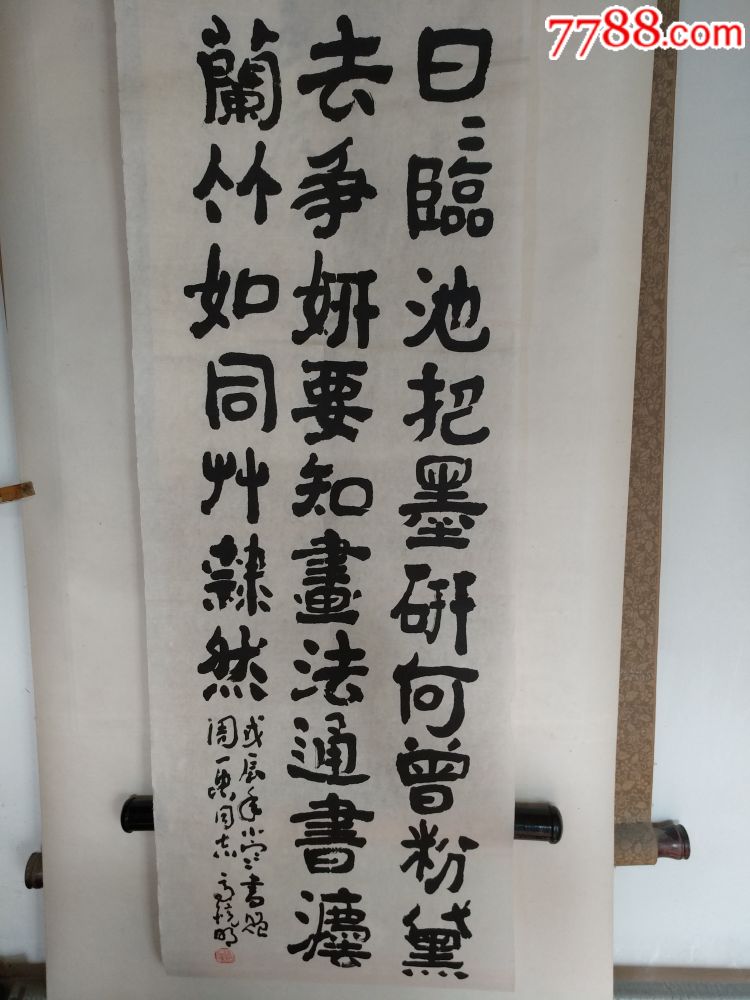 7788.com
日〻臨池把墨研何曾粉黛
去爭妍要知畫法通書灋
蘭竹如同艸隸然
戊辰年小寒書贈
周一同志